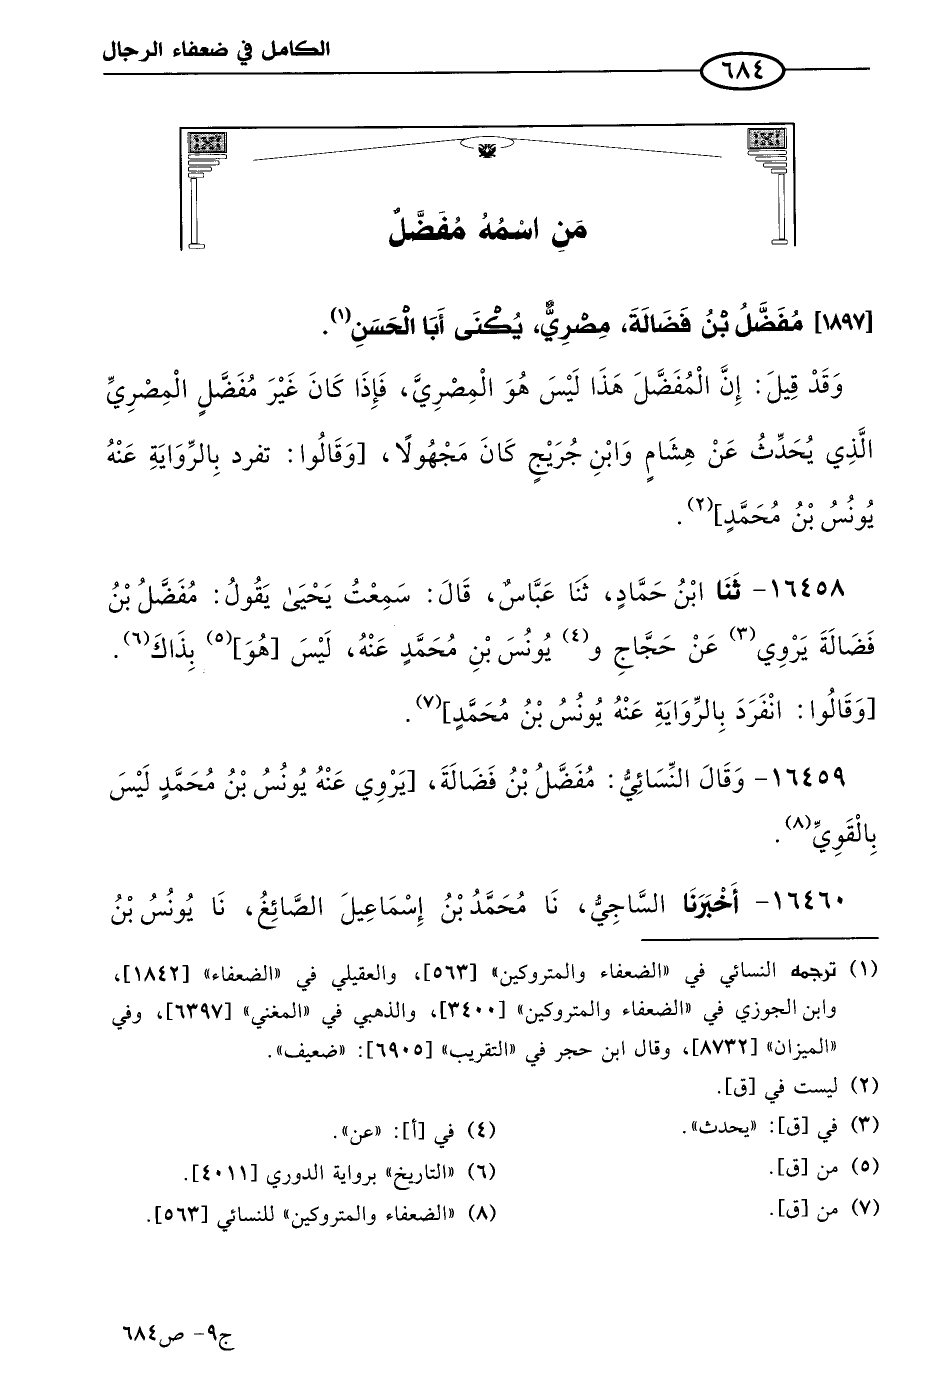 الكامل في ضعفاء الرجال
٦٨٤
مَنِ اسْمُهُ مُفَضَّلٌ
[١٨٩٧] مُفَضَّلُ بْنُ فَضَالَةَ، مِصْرِيٌّ، يُكْنَى أَبَا الْحَسَنِ(١).
وَقَدْ قِيلَ: إِنَّ الْمُفَضَّلَ هَذَا لَيْسَ هُوَ الْمِصْرِيَّ، فَإِذَا كَانَ غَيْرَ مُفَضَّلٍ الْمِصْرِيِّ
الَّذِي يُحَدِّثُ عَنْ هِشَامٍ وَابْنِ جُرَيْجٍ كَانَ مَجْهُولًا، [وَقَالُوا: تفرد بِالرِّوَايَةِ عَنْهُ
يُونُسُ بْنُ مُحَمَّدٍ](٢).
١٦٤٥٨- ثَنَا ابْنُ حَمَّادٍ، ثَنَا عَبَّاسٌ، قَالَ: سَمِعْتُ يَحْيَىٰ يَقُولُ: مُفَضَّلُ بْنُ
فَضَالَةَ يَرْوِي(٣) عَنْ حَجَّاجٍ و(٤) يُونُسَ بْنِ مُحَمَّدٍ عَنْهُ، لَيْسَ [هُوَ](٥) بِذَاكَ(٦).
[وَقَالُوا: انْفَرَدَ بِالرِّوَايَةِ عَنْهُ يُونُسُ بْنُ مُحَمَّدٍ](٧).
١٦٤٥٩- وَقَالَ النِّسَائِيُّ: مُفَضَّلُ بْنُ فَضَالَةَ، [يَرْوِي عَنْهُ يُونُسُ بْنُ مُحَمَّدٍ لَيْسَ
بِالْقَوِيِّ(٨).
١٦٤٦٠- أَخْبَرَنَا السَّاجِيُّ، نَا مُحَمَّدُ بْنُ إِسْمَاعِيلَ الصَّائِغُ، نَا يُونُسُ بْنُ
(١) ترجمه النسائي في «الضعفاء والمتروكين» [٥٦٣]، والعقيلي في «الضعفاء» [١٨٤٢]،
وابن الجوزي في «الضعفاء والمتروكين» [٣٤٠٠]، والذهبي في «المغني» [٦٣٩٧]، وفي
«الميزان» [٨٧٣٢]، وقال ابن حجر في «التقريب» [٦٩٠٥]: «ضعيف».
(٢) ليست في [ق].
(٣) في [ق]: «يحدث». (٤) في [أ]: «عن».
(٥) من [ق]. (٦) «التاريخ» برواية الدوري [٤٠١١].
(٧) من [ق]. (٨) «الضعفاء والمتروكين» للنسائي [٥٦٣].
ج٩- ص٦٨٤